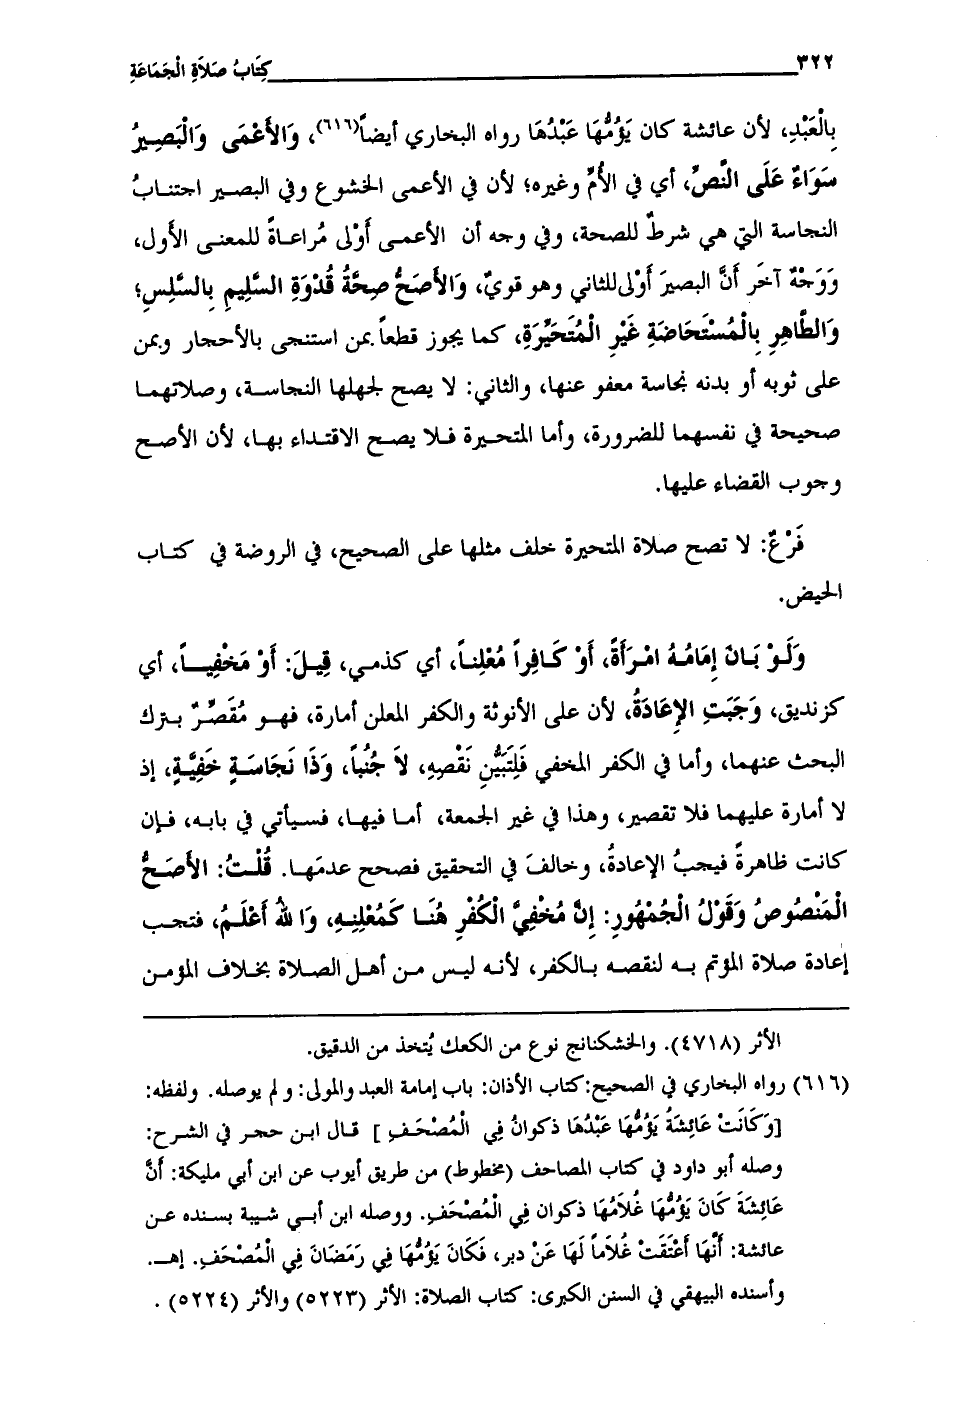 ٣٢٢ كِتَابُ صَلاَةِ الْجَمَاعَةِ
بِالْعَبْدِ، لأن عائشة كان يَؤُمُّهَا عَبْدُهَا رواه البخاري أيضاً(٦١٦)، وَالأَعْمَى وَالْبَصِيرُ
سَوَاءٌ عَلَى النَّصِّ، أي في الأُمِّ وغيره؛ لأن في الأعمى الخشوع وفي البصير اجتنابُ
النجاسة التي هي شرطٌ للصحة، وفي وجه أن الأعمى أَوْلى مُراعاةً للمعنى الأول،
وَوَجْهٌ آخَر أَنَّ البصيرَ أَوْلى للثاني وهو قويٌ، وَالأَصَحُّ صِحَّةُ قُدْوَةِ السَّلِيمِ بِالسَّلِسِ؛
وَالطَّاهِرِ بِالْمُسْتَحَاضَةِ غَيْرِ الْمُتَحَيِّرَةِ، كما يجوز قطعاً بمن استنجى بالأحجار وبمن
على ثوبه أو بدنه نجاسة معفو عنها، والثاني: لا يصح لجهلها النجاسة، وصلاتهما
صحيحة في نفسهما للضرورة، وأما المتحيرة فلا يصح الاقتداء بها، لأن الأصح
وجوب القضاء عليها.
فَرْعٌ: لا تصح صلاة المتحيرة خلف مثلها على الصحيح، في الروضة في كتاب
الحيض.
وَلَوْ بَانَ إِمَامُهُ امْرَأَةً، أَوْ كَافِراً مُعْلِناً، أي كذمي، قِيلَ: أَوْ مَخْفِياً، أي
كزنديق، وَجَبَتِ الإِعَادَةُ، لأن على الأنوثة والكفر المعلن أمارة، فهو مُقَصِّرٌ بترك
البحث عنهما، وأما في الكفر المخفي فَلِتَبَيُّنِ نَقْصِهِ، لاَ جُنُباً، وَذَا نَجَاسَةٍ خَفِيَّةٍ، إذ
لا أمارة عليهما فلا تقصير، وهذا في غير الجمعة، أما فيها، فسيأتي في بابه، فإن
كانت ظاهرةً فيجبُ الإعادةُ، وخالفَ في التحقيق فصحح عدمَها. قُلْتُ: الأَصَحُّ
الْمَنْصُوصُ وَقَوْلُ الْجُمْهُورِ: إِنَّ مُخْفِيَّ الْكُفْرِ هُنَا كَمُعْلِنِهِ، وَا للهُ أَعْلَمُ، فتجب
إعادة صلاة المؤتم به لنقصه بالكفر، لأنه ليس من أهل الصلاة بخلاف المؤمن
الأثر (٤٧١٨). والخشكنانج نوع من الكعك يُتخذ من الدقيق.
(٦١٦) رواه البخاري في الصحيح:كتاب الأذان: باب إمامة العبد والمولى: و لم يوصله. ولفظه:
[وَكَانَتْ عَائِشَةُ يَؤُمُّهَا عَبْدُهَا ذكوانُ فِي الْمُصْحَفِ ] قال ابن حجر في الشرح:
وصله أبو داود في كتاب المصاحف (مخطوط) من طريق أيوب عن ابن أبي مليكة: أنَّ
عَائِشَةَ كَانَ يَؤُمُّهَا غُلاَمُهَا ذكوان فِي الْمُصْحَفِ. ووصله ابن أبي شيبة بسنده عن
عائشة: أَنَّهَا أَعْتَقَتْ غُلاَماً لَهَا عَنْ دبر، فَكَانَ يَؤُمُّهَا فِي رَمَضَانَ فِي الْمُصْحَفِ. إهـ.
وأسنده البيهقي في السنن الكبرى: كتاب الصلاة: الأثر (٥٢٢٣) والأثر (٥٢٢٤) .